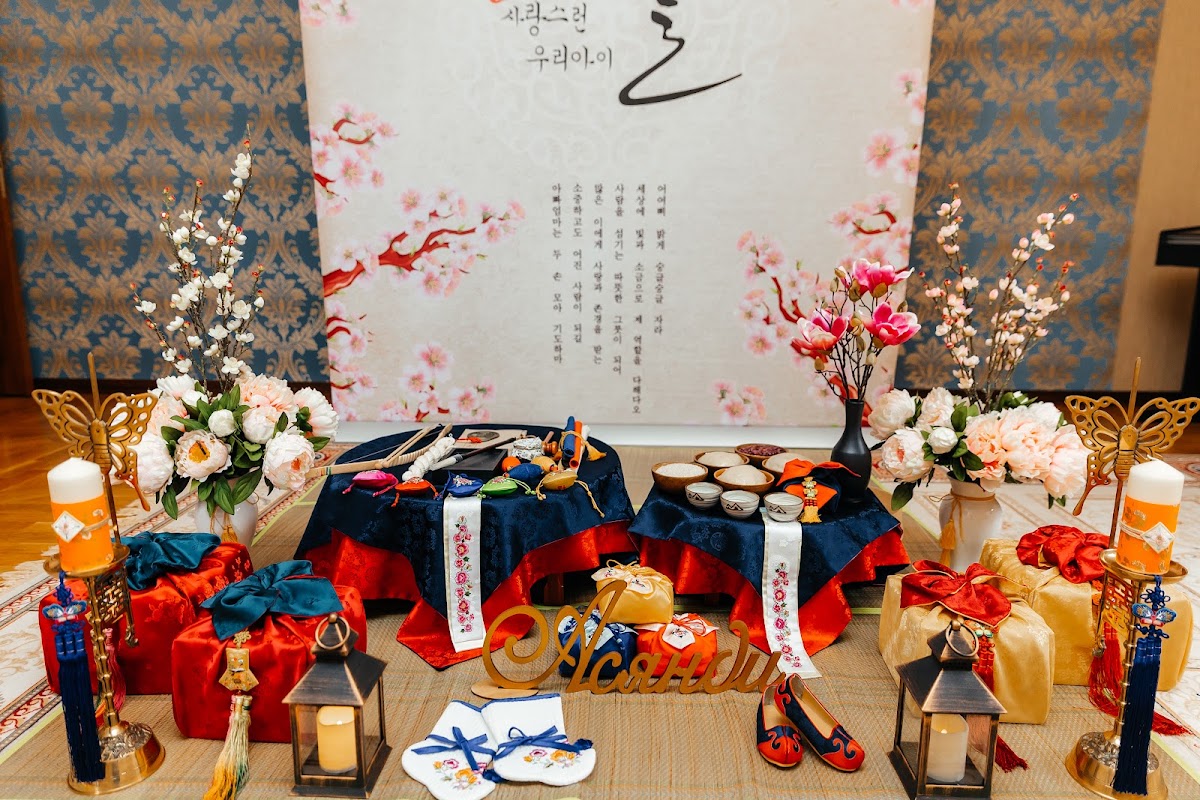 사랑스런
우리아이
어여삐 밝게 숭글숭글 자라
세상에 빛과 소금으로 제 역할을 다해다오
사람을 섬기는 따뜻한 그릇이 되어
많은 이에게 사랑과 존경을 받는
소중하고도 어진 사람이 되길
아빠엄마는 두 손 모아 기도하마
Асянди